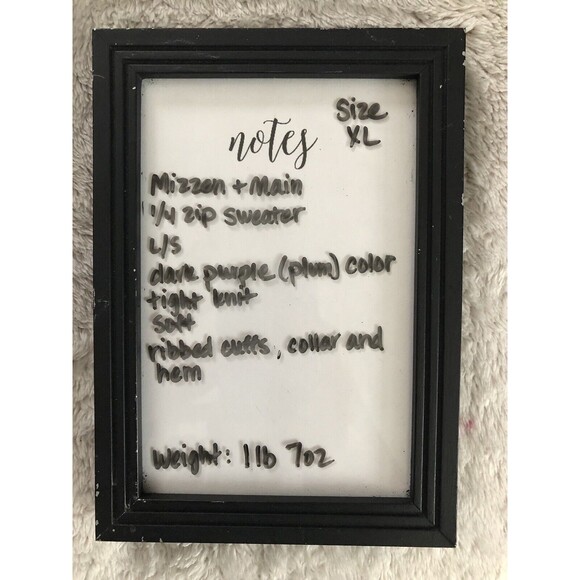 Size
XL
notes
Mizzen + Main
1/4 zip sweater
L/S
dark purple (plum) color
tight knit
soft
ribbed cuffs, collar and
hem
Weight: 1 lb 7oz